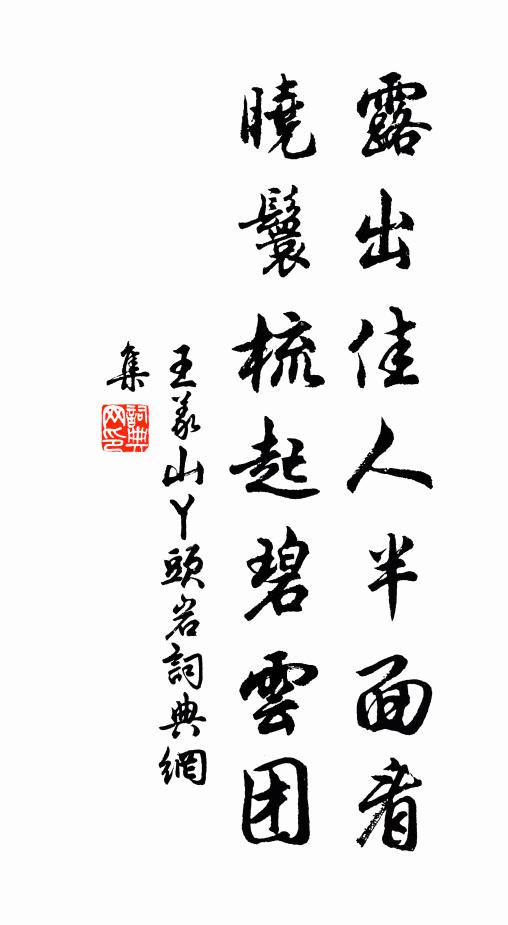 露出佳人半面看
曉鬟梳起碧雲团
王义山丫頭岩詞典網
集
詞典
网印